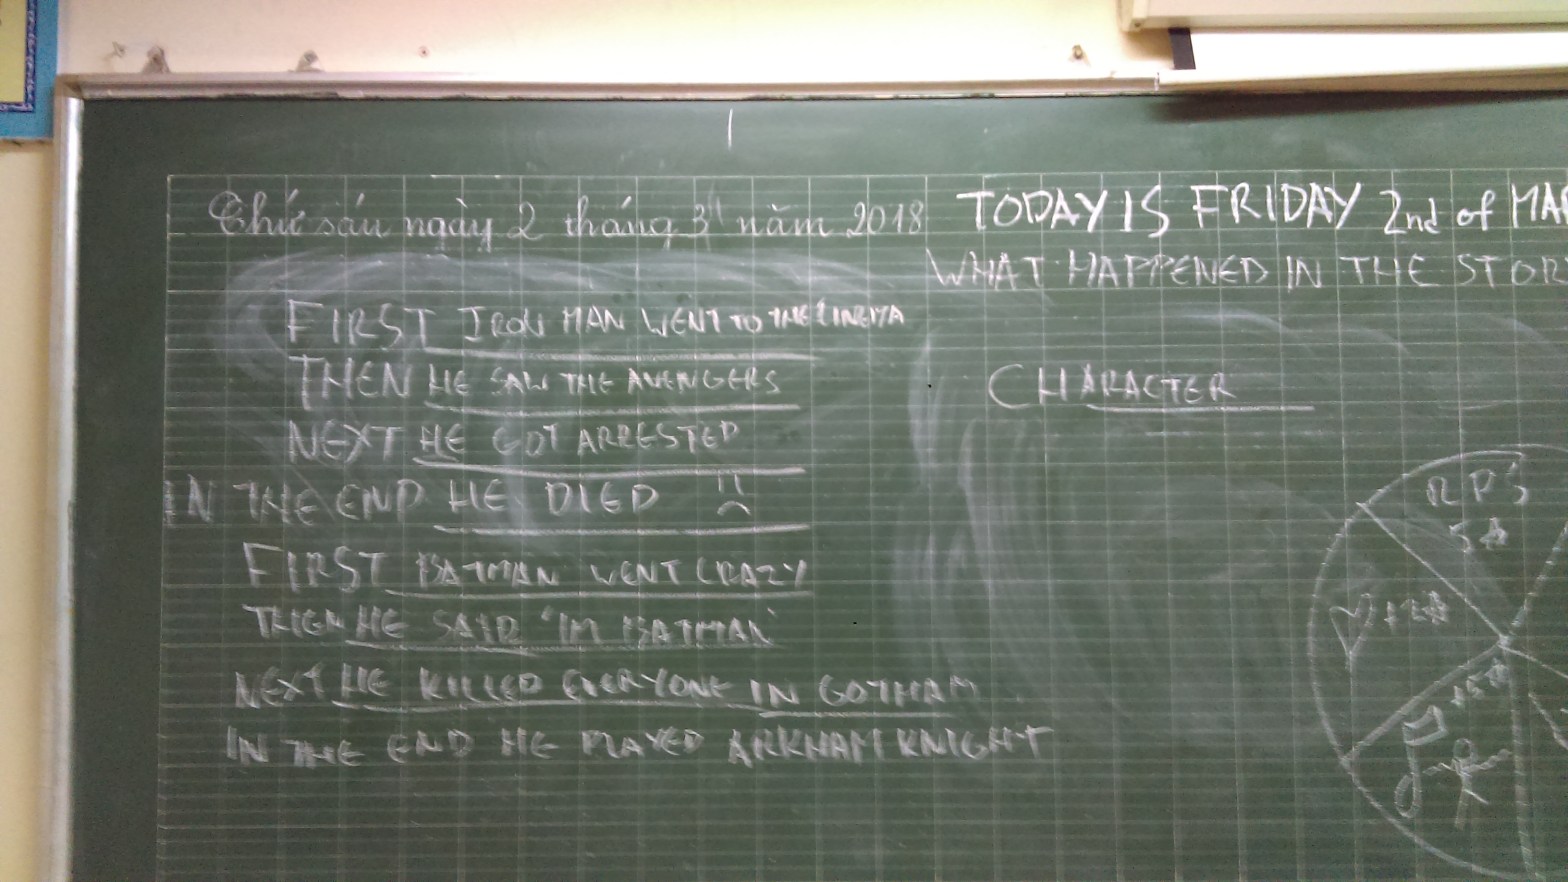 Thứ sáu ngày 2 tháng 3 năm 2018
TODAY IS FRIDAY 2nd of MA
WHAT HAPPENED IN THE STOR
FIRST IRON MAN WENT TO THE CINEMA
THEN HE SAW THE AVENGERS
CHARACTER
NEXT HE GOT ARRESTED
IN THE END HE DIED :(
FIRST BATMAN WENT CRAZY
THEN HE SAID "IM BATMAN"
NEXT HE KILLED EVERYONE IN GOTHAM
IN THE END HE PLAYED ARKHAM KNIGHT
RPS